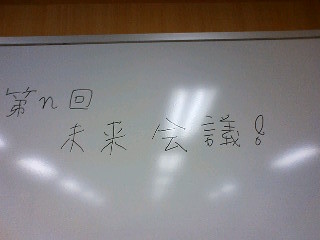 第n回
未来会議!